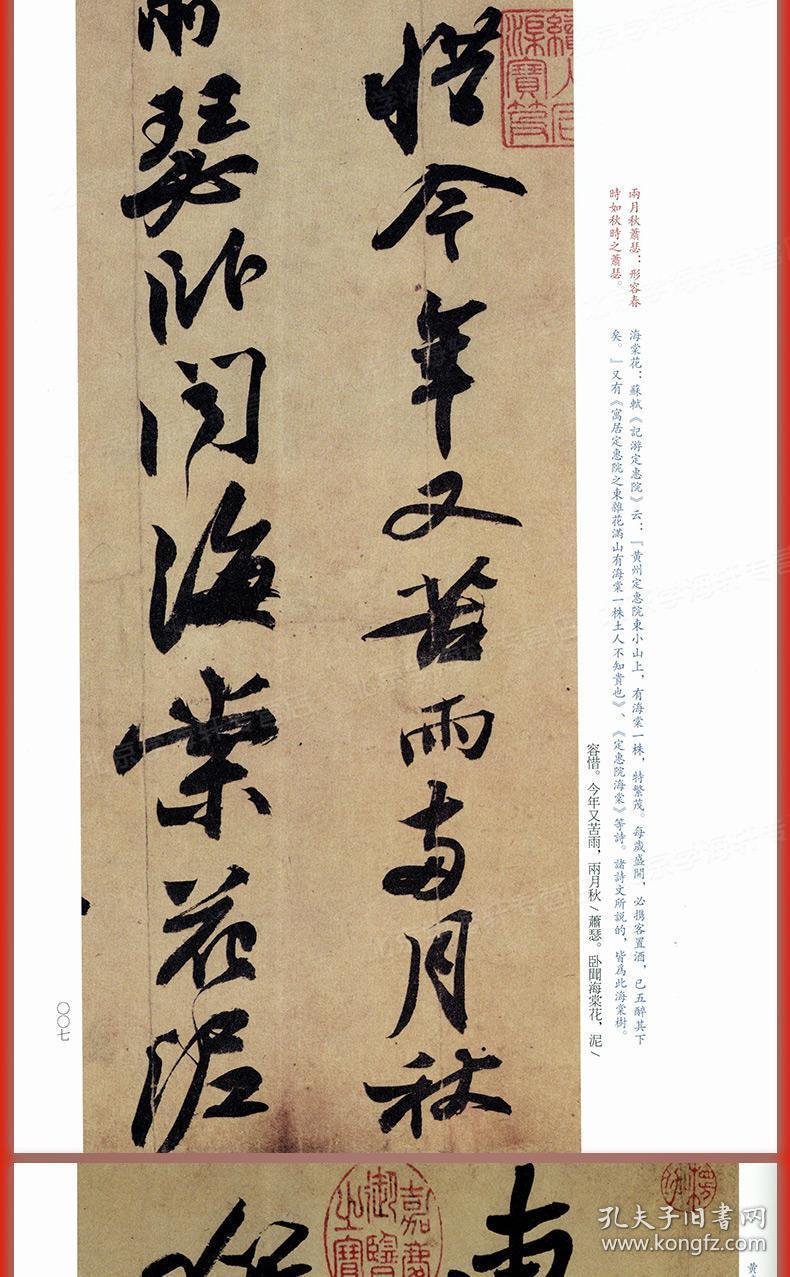 兩月秋蕭瑟：形容春
時如秋時之蕭瑟。
海棠花：蘇軾《記游定惠院》云：『黄州定惠院東小山上，有海棠一株，特繁茂。每歲盛開，必携客置酒，已五醉其下
矣。』又有《寓居定惠院之東雜花滿山有海棠一株土人不知貴也》、《定惠院海棠》等詩。諸詩文所説的，皆爲此海棠樹。
容惜。今年又苦雨，兩月秋/蕭瑟。卧聞海棠花，泥/
惜今年又苦雨兩月秋
瑟卧聞海棠花泥
〇〇七
嘉慶
御覽
之寶
黄
孔夫子旧书网
www.kongfz.com